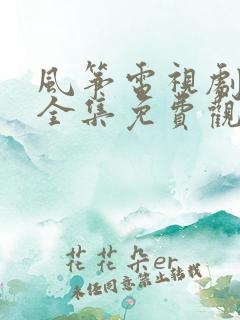 風筝電視劇
全集免費觀
花花朵er
未经同意禁止转载